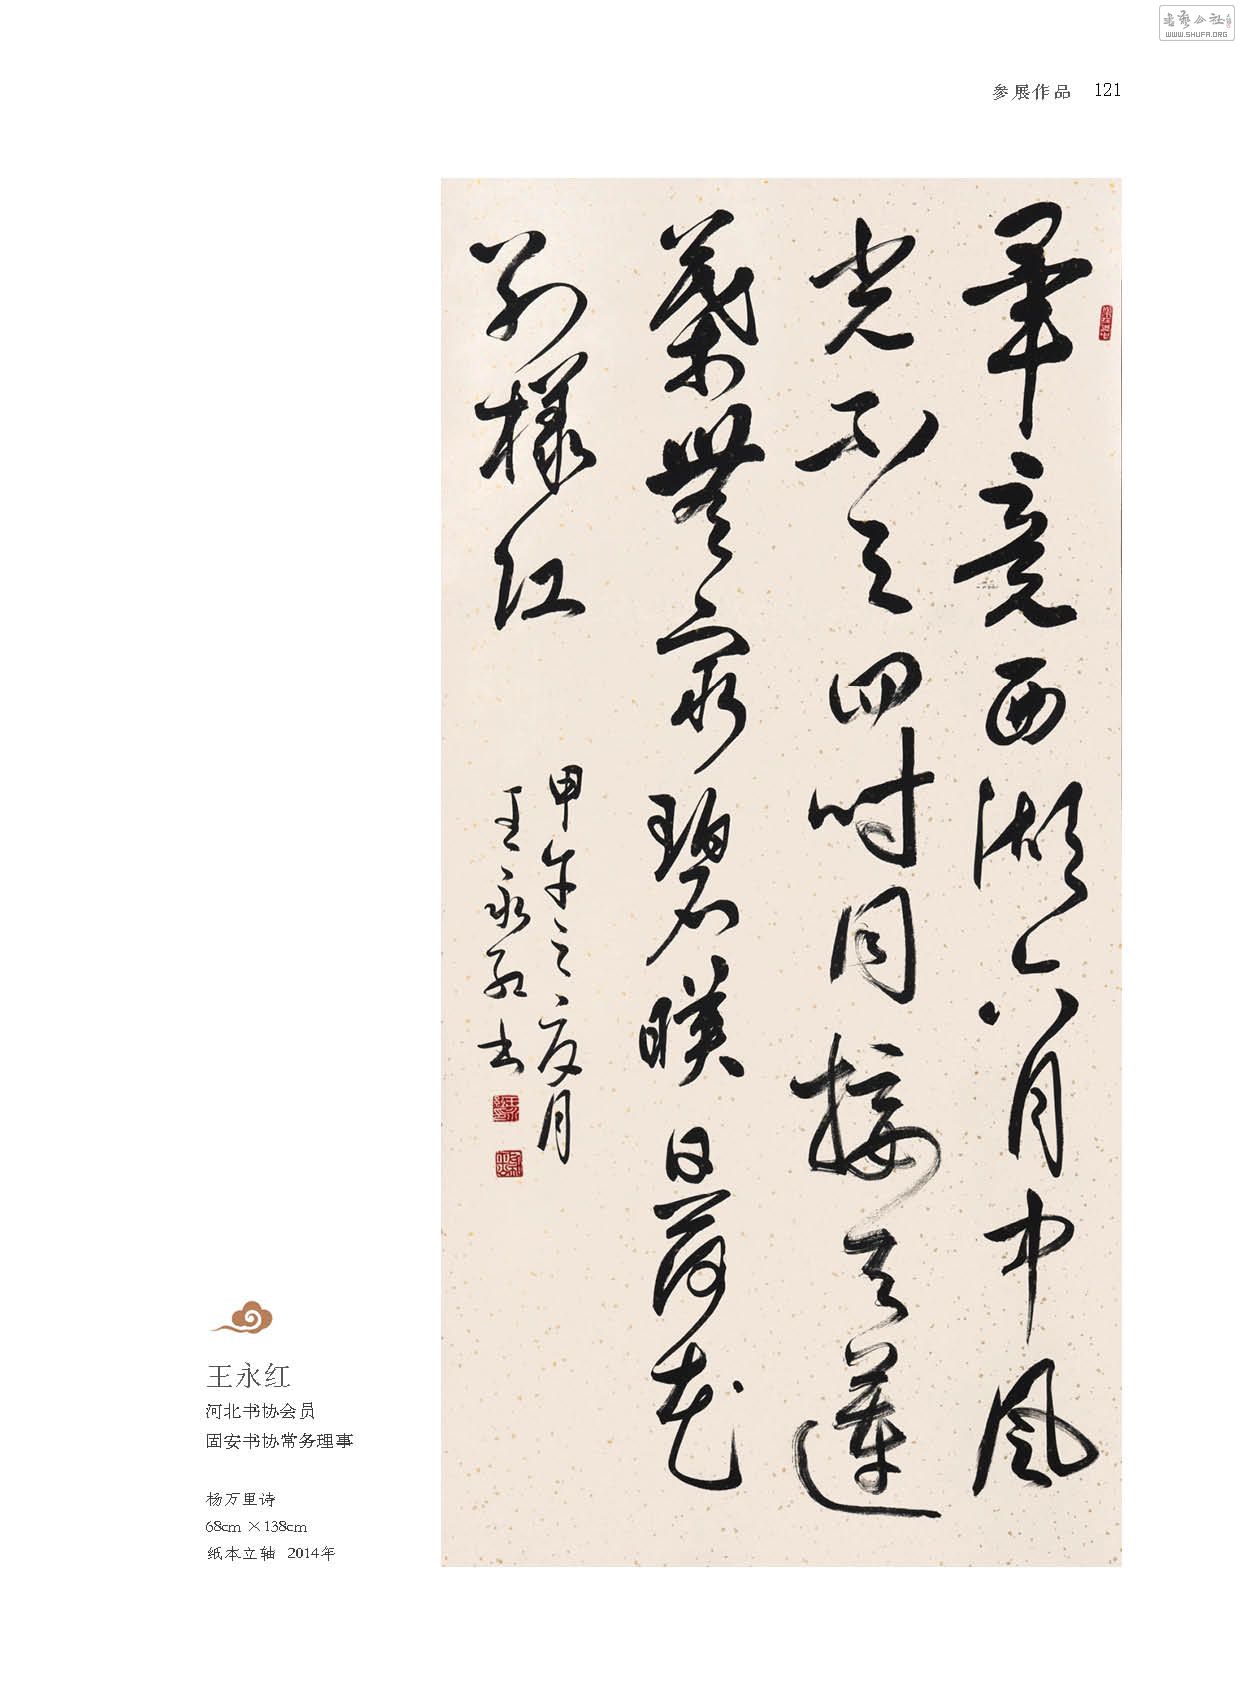 书艺公社
WWW.SHUFA.ORG
参展作品 121
畢竟西湖六月中風
光不与四时同接天蓮
葉無窮碧暎日荷花
别樣红
甲午之夏月
王永红书
王永红
河北书协会员
固安书协常务理事
杨万里诗
68cm ×138cm
纸本立轴 2014年